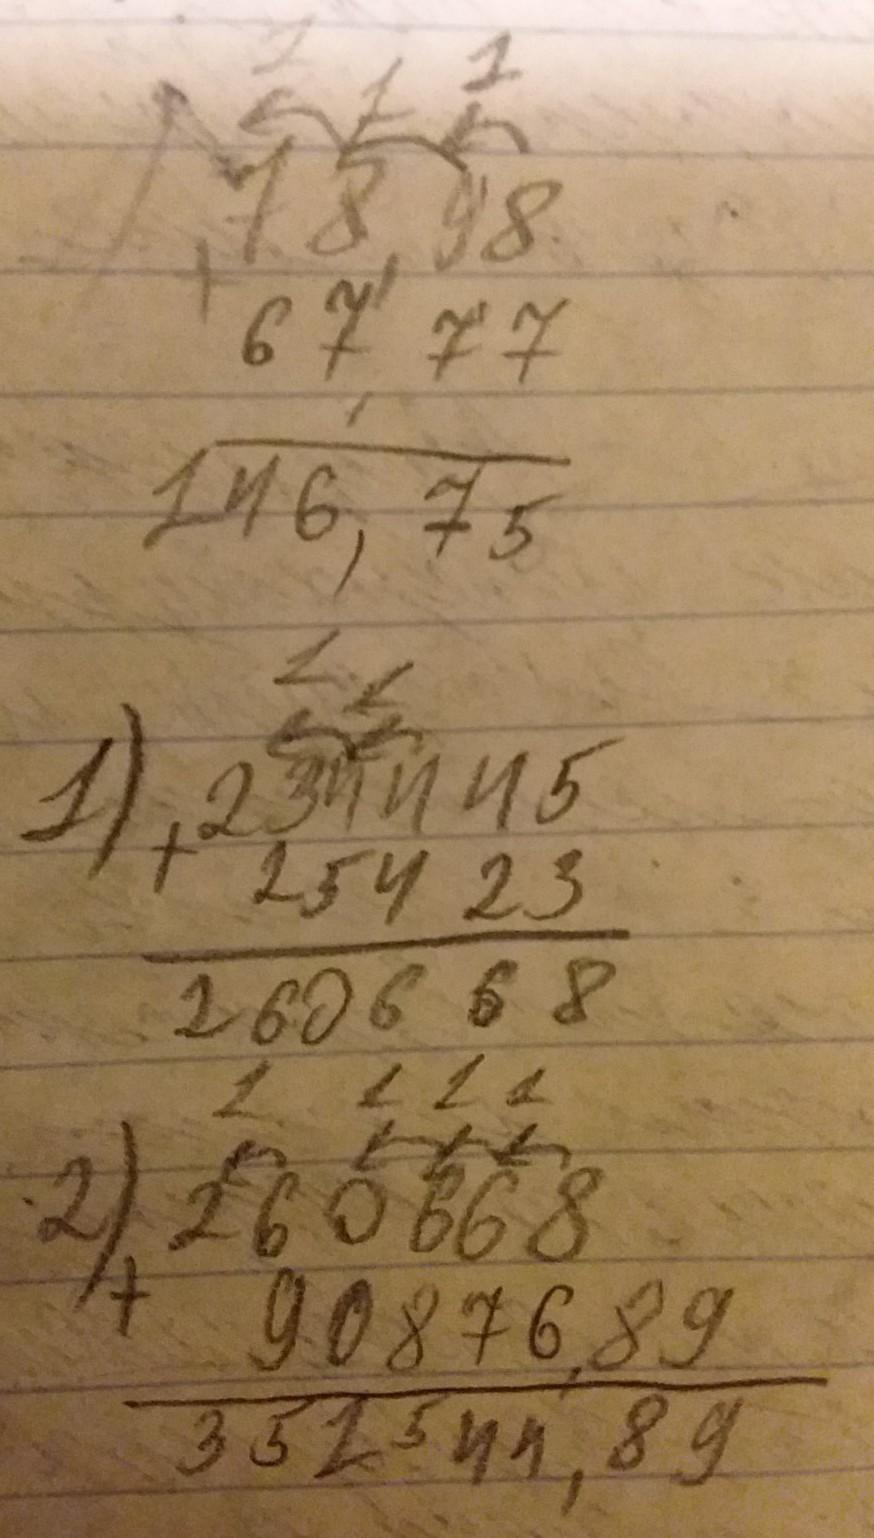 1 1 1
78,98
+
67,77
146,75
1 1
1) 234445
+ 25423
260668
1 1 1 1
2) 260668
+ 90876,89
351544,89